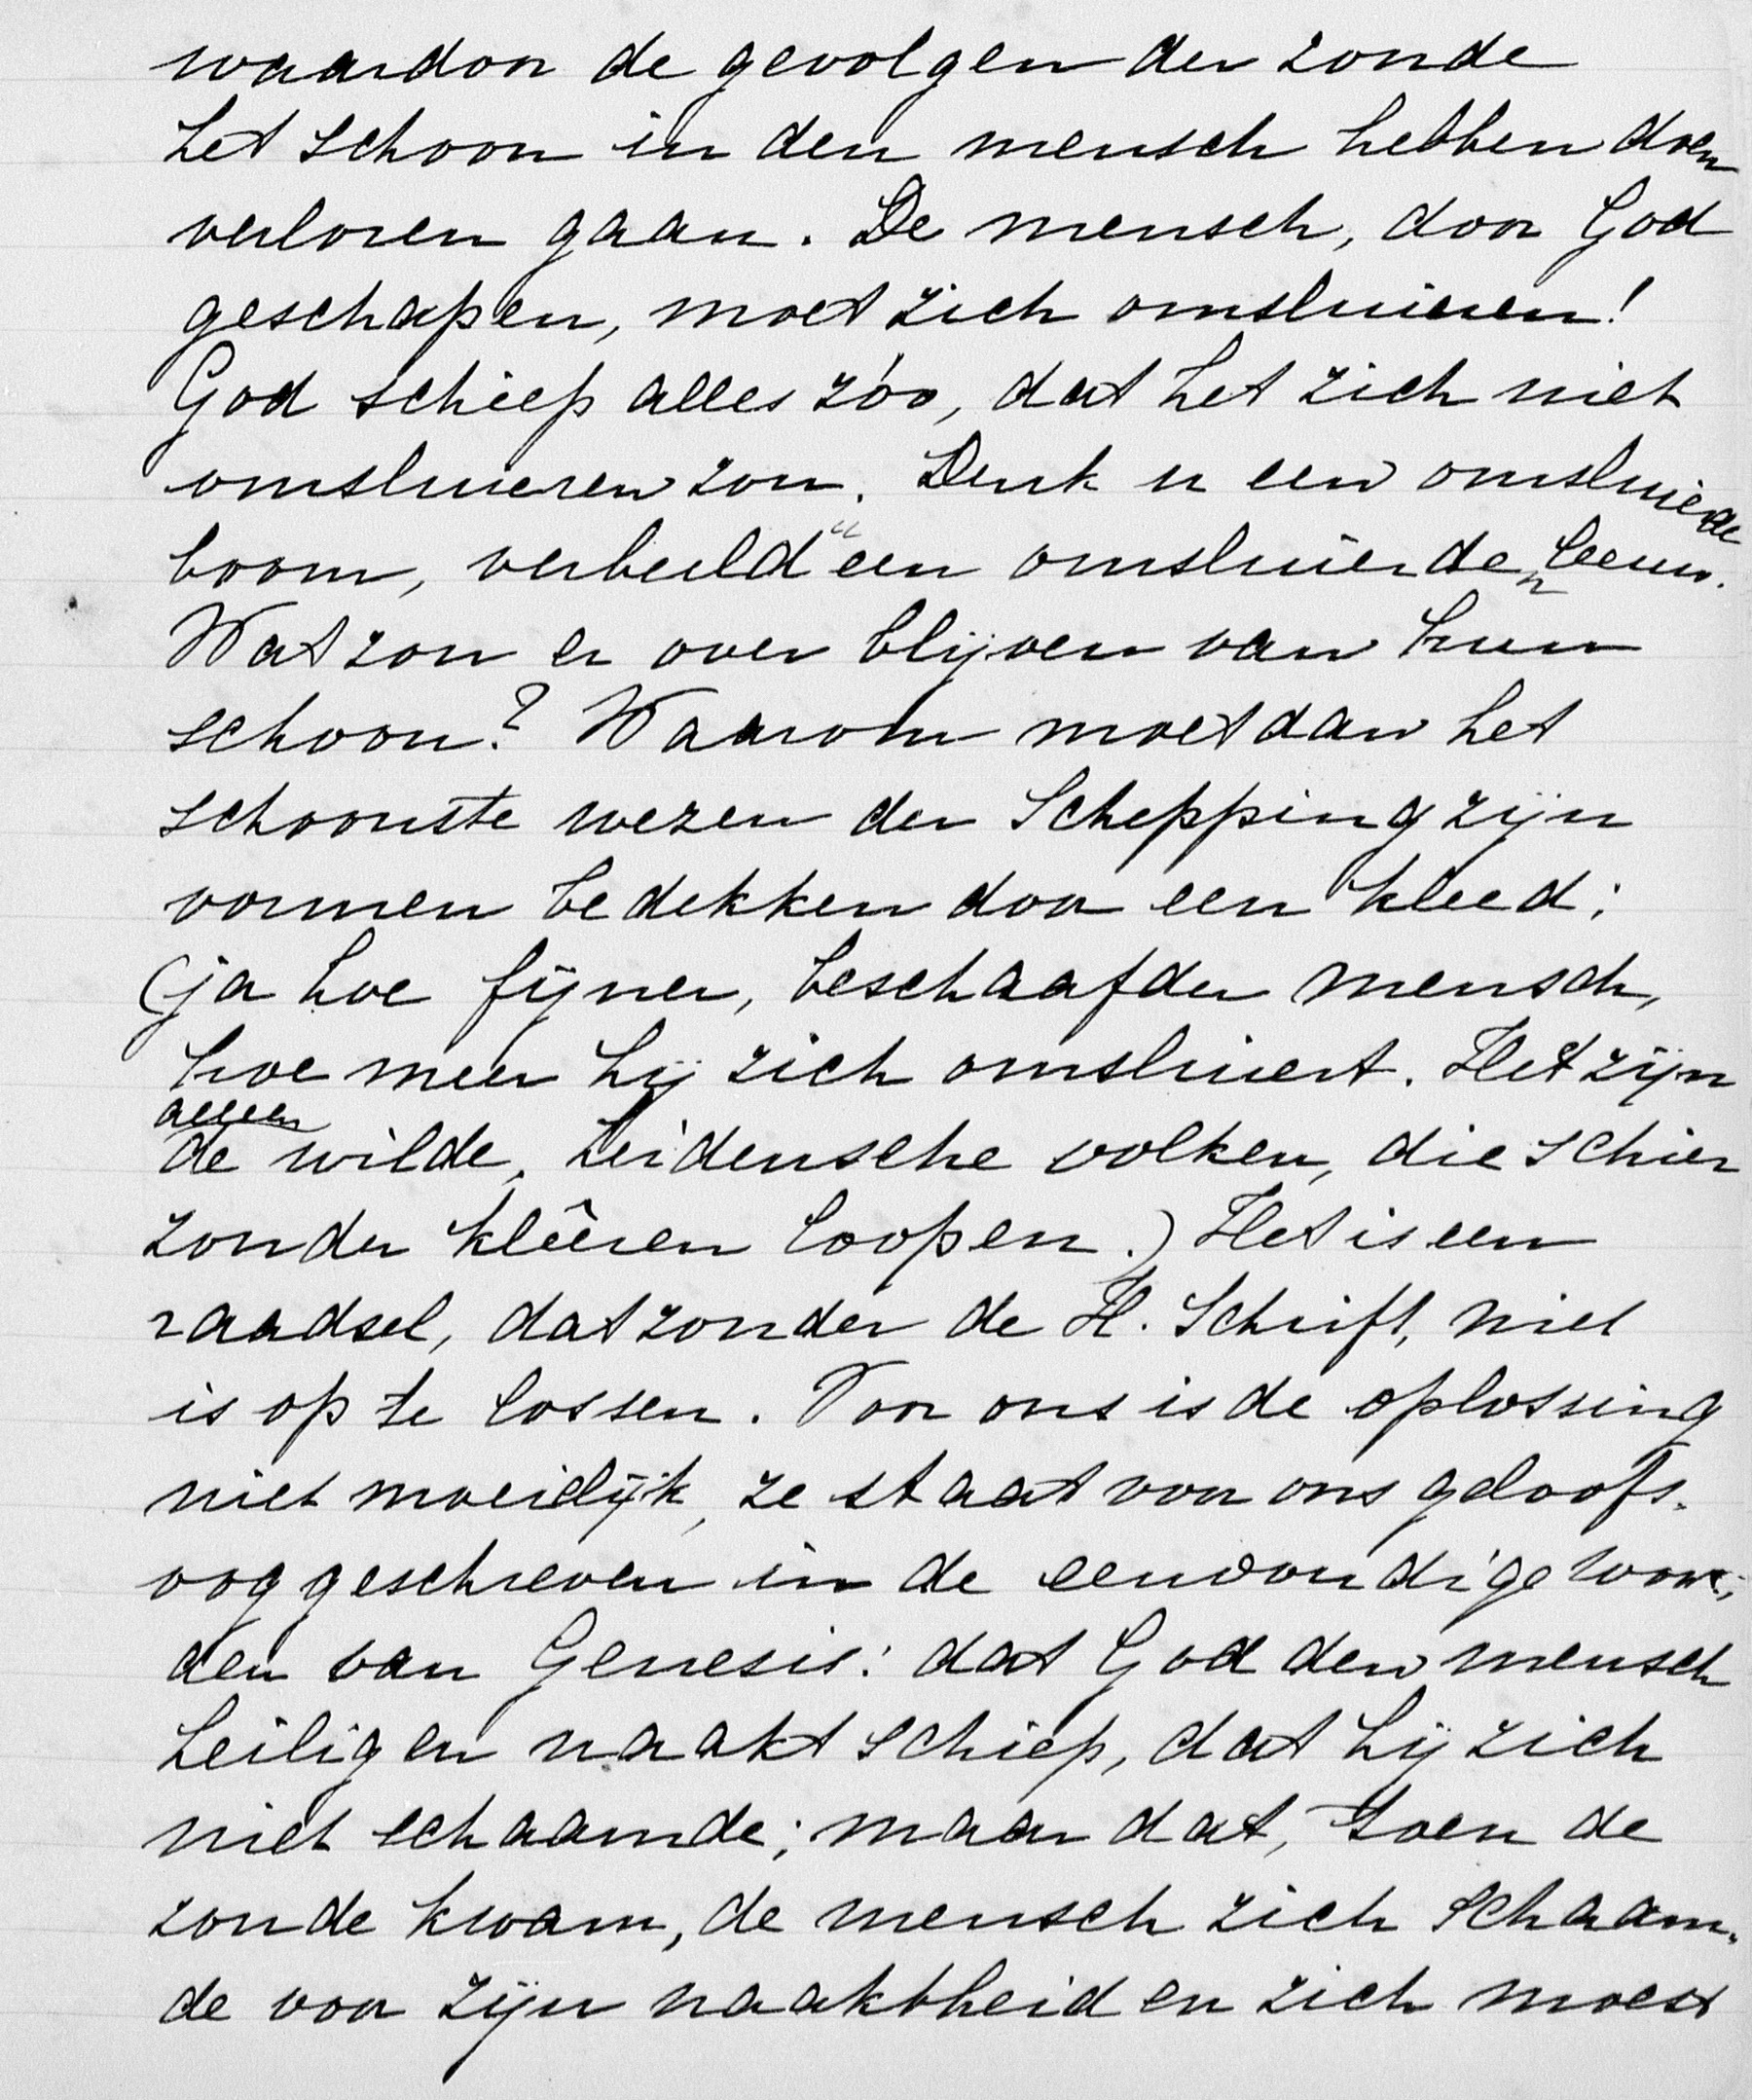 waardoor de gevolgen der zonde
het schoon in den mensch hebben doen
verloren gaan. De mensch, door God
geschapen, moet zich omsluieren!
God schiep alles zóo, dat het zich niet
omsluieren zou. Denk u een omsluierde
boom, verbeeld u een omsluierden leeuw.
Wat zou er over blijven van hun
schoon? Waarom moet dan het
schoonste wezen der Schepping zijn
vormen bedekken door een kleed;
(ja hoe fijner, beschaafder mensch,
hoe meer hij zich omsluiert. Het zijn
alleen
de wilde, heidensche volken, die schier
zonder klêeren loopen.) Het is een
raadsel, dat zonder de H. Schrift, niet
is op te lossen. Voor ons is de oplossing
niet moeielijk, ze staat voor ons geloofs-
oog geschreven in de eenvoudige woor-
den van Genesis: dat God den mensch
heilig en naakt schiep, dat hij zich
niet schaamde; maar dat, toen de
zonde kwam, de mensch zich schaam-
de voor zijn naaktheid en zich moest